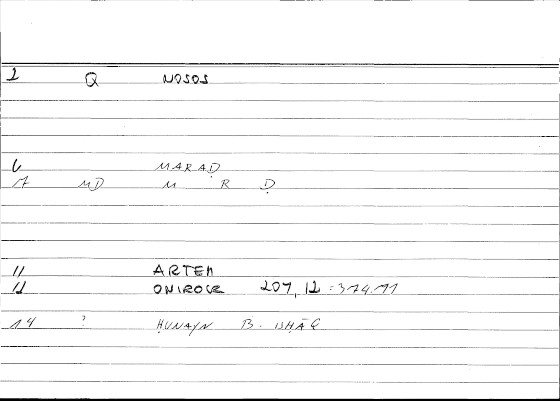 2 Q NOSOS
6 MARAḌ
7 MD M R Ḍ
11 ARTEM
12 ONIROCR 207,12 = 379.11
14 ? ḤUNAYN B. ISḤĀQ